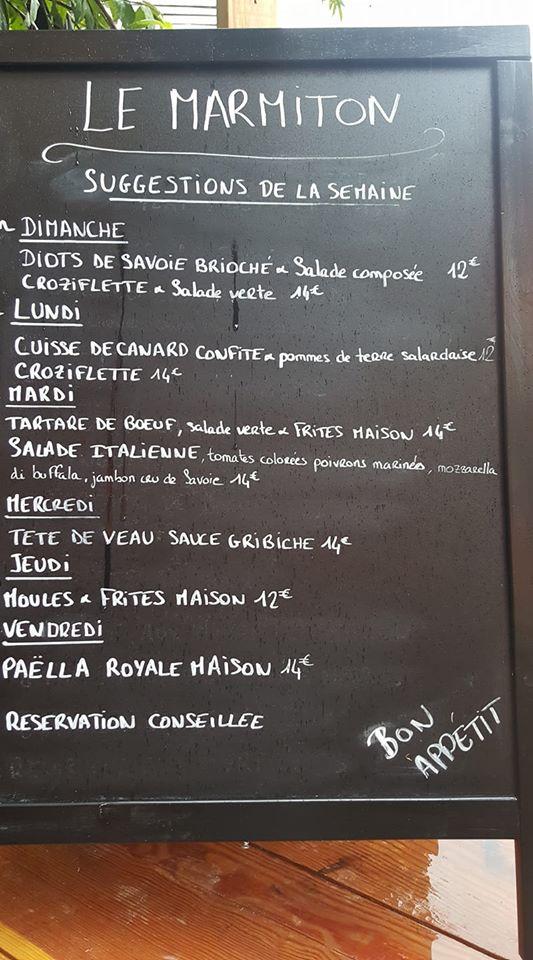 LE MARMITON
SUGGESTIONS DE LA SEMAINE
DIMANCHE
DIOTS DE SAVOIE BRIOCHÉ & Salade composée 12€
CROZIFLETTE & Salade verte 14€
LUNDI
CUISSE DE CANARD CONFITE & pommes de terre salardaise 12€
CROZIFLETTE 14€
MARDI
TARTARE DE BOEUF, salade verte & FRITES MAISON 14€
SALADE ITALIENNE, tomates colorées poivrons marinés, mozzarella
di buffala, jambon cru de Savoie 14€
MERCREDI
TETE DE VEAU SAUCE GRIBICHE 14€
JEUDI
MOULES & FRITES MAISON 12€
VENDREDI
PAËLLA ROYALE MAISON 14€
RESERVATION CONSEILLEE
BON
APPÉTIT